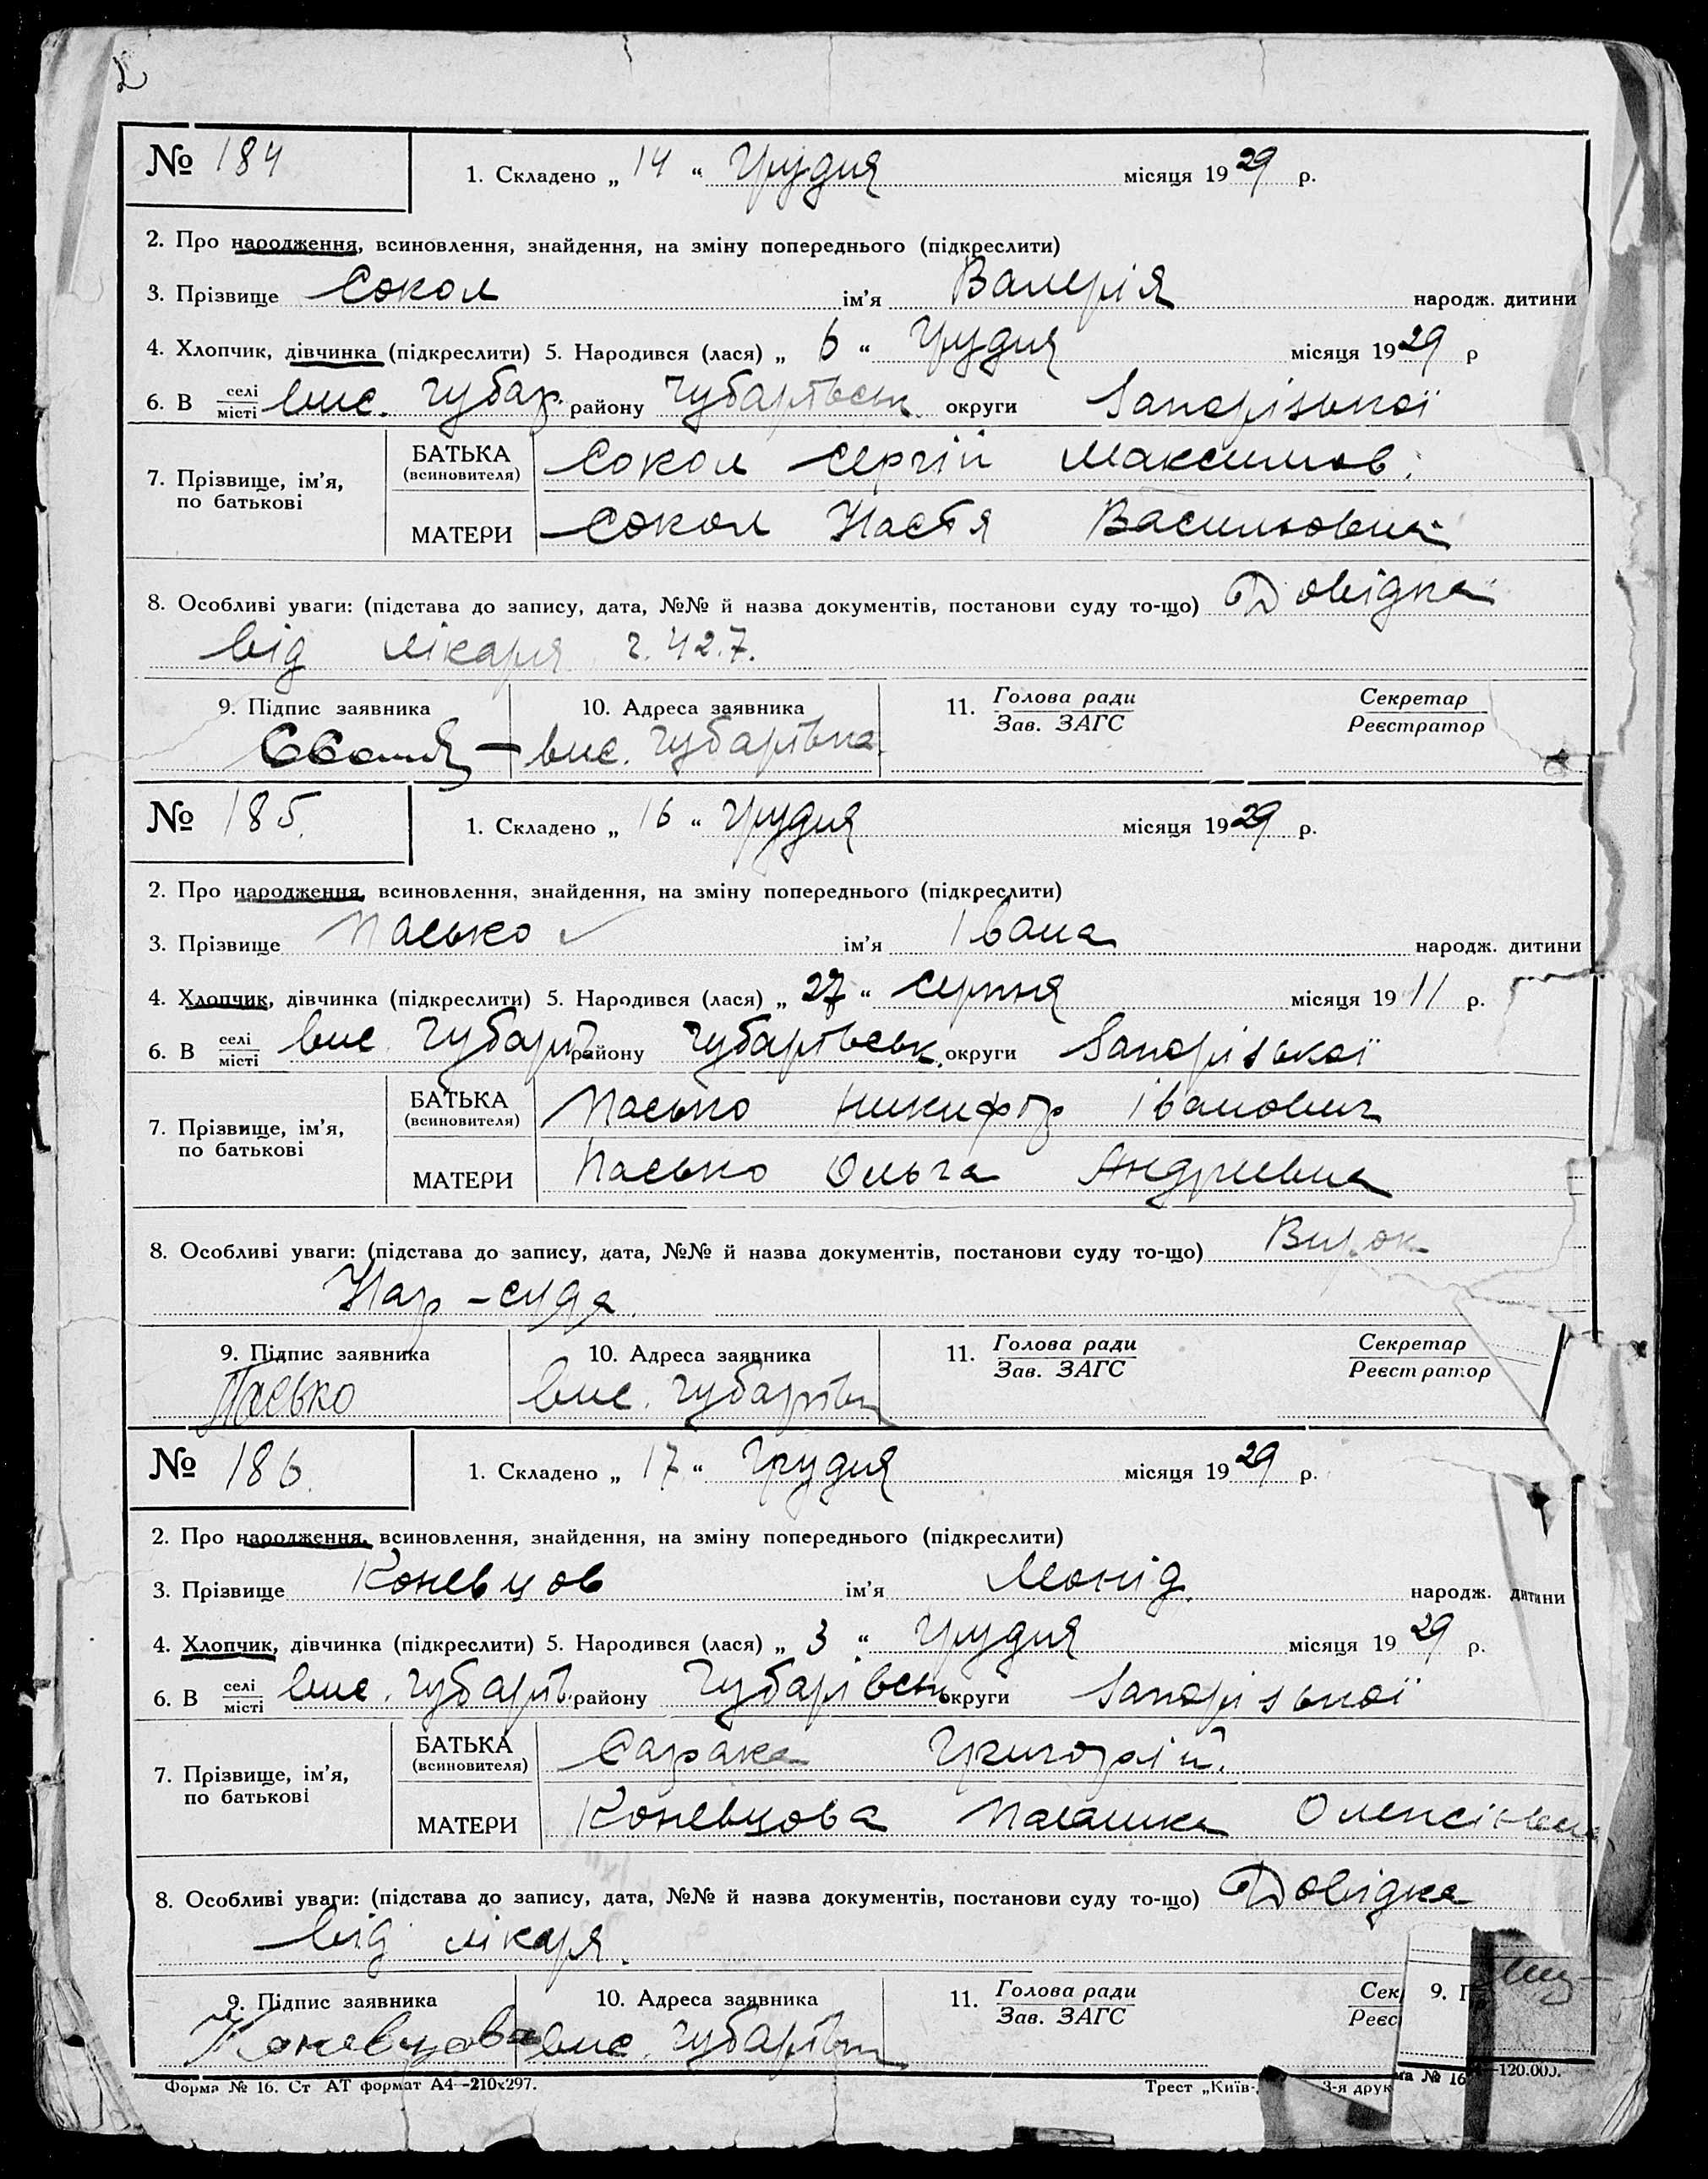 № 184 1. Складено „ 14 “ Грудня місяця 1929 р.
2. Про народження, всиновлення, знайдення, на зміну попереднього (підкреслити)
3. Прізвище Сокол ім’я Валерія народж. дитини
4. Хлопчик, дівчинка (підкреслити) 5. Народився (лася) „ 6 “ Грудня місяця 1929 р
6. В селі/місті вис. Чубар. району Чубарівськ. округи Запорізької
7. Прізвище, ім’я, по батькові БАТЬКА (всиновителя) Сокол Сергій Максимов.
МАТЕРИ Сокол Настя Васильовна
8. Особливі уваги: (підстава до запису, дата, №№ й назва документів, постанови суду то-що) Довідка
від лікаря ч. 427.
9. Підпис заявника 10. Адреса заявника 11. Голова ради Секретар
Зав. ЗАГС Реєстратор
вис. Чубарівка
№ 185. 1. Складено „ 16 “ Грудня місяця 1929 р.
2. Про народження, всиновлення, знайдення, на зміну попереднього (підкреслити)
3. Прізвище Пасько ім’я Івана народж. дитини
4. Хлопчик, дівчинка (підкреслити) 5. Народився (лася) „ 27 “ серпня місяця 1911 р.
6. В селі/місті вис. Чубарів району Чубарівськ. округи Запорізької
7. Прізвище, ім’я, по батькові БАТЬКА (всиновителя) Пасько Никифор Іванович
МАТЕРИ Пасько Ольга Андриевна
8. Особливі уваги: (підстава до запису, дата, №№ й назва документів, постанови суду то-що) Вирок
Нар-суда
9. Підпис заявника 10. Адреса заявника 11. Голова ради Секретар
Зав. ЗАГС Реєстратор
Пасько вис. Чубарівк
№ 186. 1. Складено „ 17 “ Грудня місяця 1929 р.
2. Про народження, всиновлення, знайдення, на зміну попереднього (підкреслити)
3. Прізвище Коневцов ім’я Леонід. народж. дитини
4. Хлопчик, дівчинка (підкреслити) 5. Народився (лася) „ 3 “ Грудня місяця 1929 р.
6. В селі/місті вис. Чубарів. району Чубарівськ округи Запорізької
7. Прізвище, ім’я, по батькові БАТЬКА (всиновителя) Григорій.
МАТЕРИ Коневцова Палашка Олексіївна
8. Особливі уваги: (підстава до запису, дата, №№ й назва документів, постанови суду то-що) Довідка
від лікаря.
9. Підпис заявника 10. Адреса заявника 11. Голова ради Сек
Зав. ЗАГС Реєс
9. П
Коневцова вис. Чубарівк
Форма № 16. Ст АТ формат А4—210х297. Трест „Київ- 3-я друк ма № 16 —120.000.